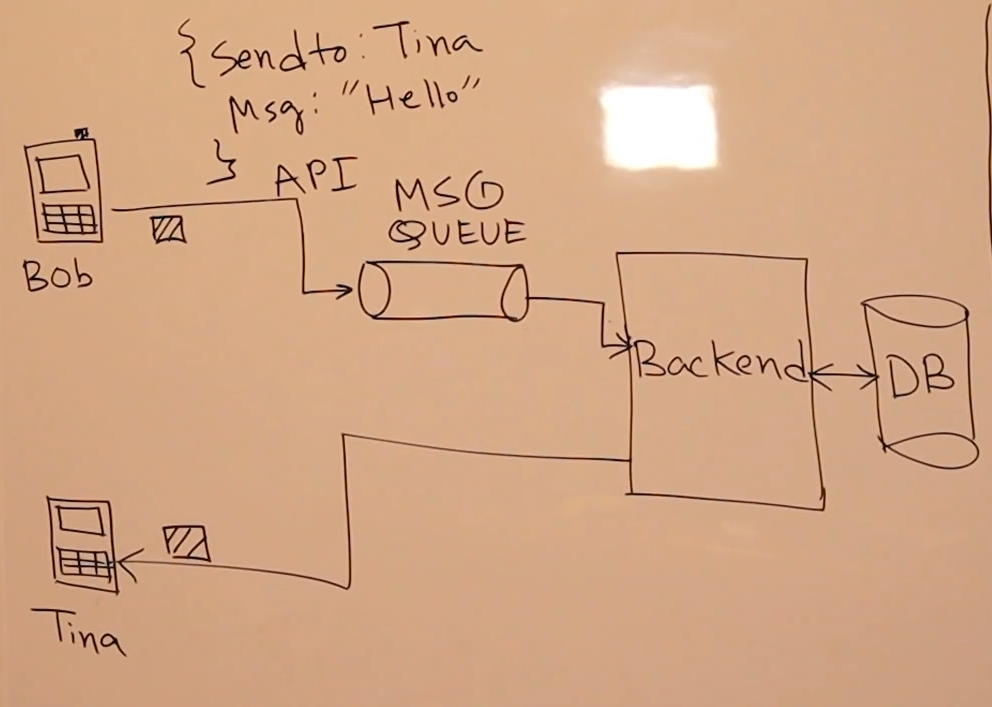 {Sendto: Tina
Msg: "Hello"
}
API
MSG
QUEUE
Bob
Backend
DB
Tina